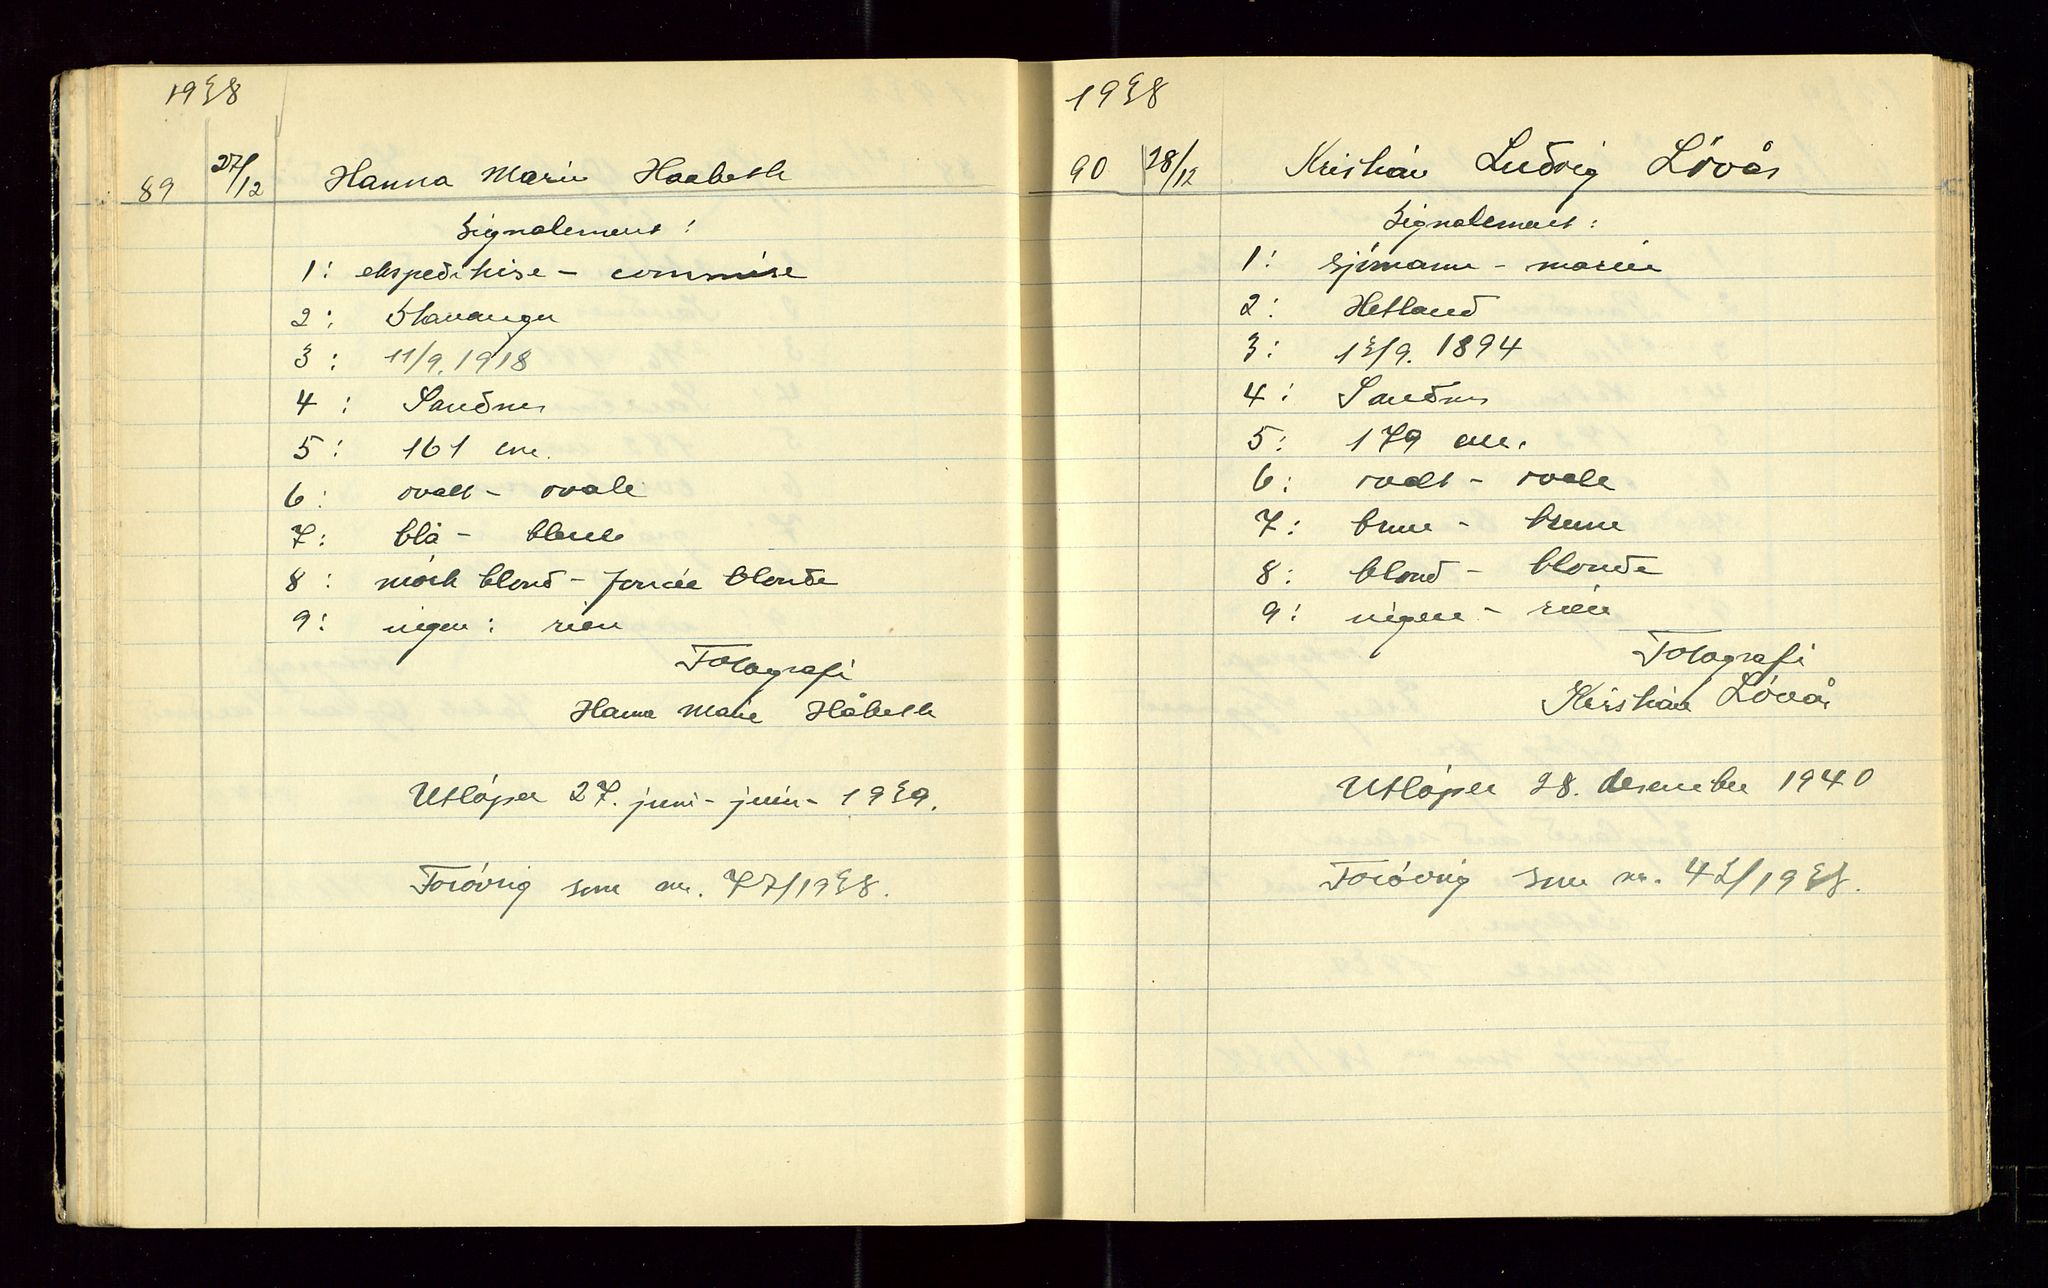 1938
89 27/12 Hanna Marie Haabeth
Signalement:
1: ekspeditrise - commise
2: Stavanger
3: 11/9. 1918
4: Sandnes
5: 161 cm.
6: ovalt - ovale
7: blå - bleue
8: mörk blond - foncée blonde
9: ingen: rien
Fotografi
Hanna Marie Håbeth
Utlöper 27. juni - juin - 1939.
Forövrig som nr. 77/1938.
1938
90 28/12 Kristian Ludvig Lövås
Signalement:
1: sjömann - marin
2: Hetland
3: 13/9. 1894
4: Sandnes
5: 179 cm.
6: ovalt - ovale
7: brune - brune
8: blond - blonde
9: ingen - rien
Fotografi
Kristian Lövås
Utlöper 28. desember 1940
Forövrig som nr. 43/1938.